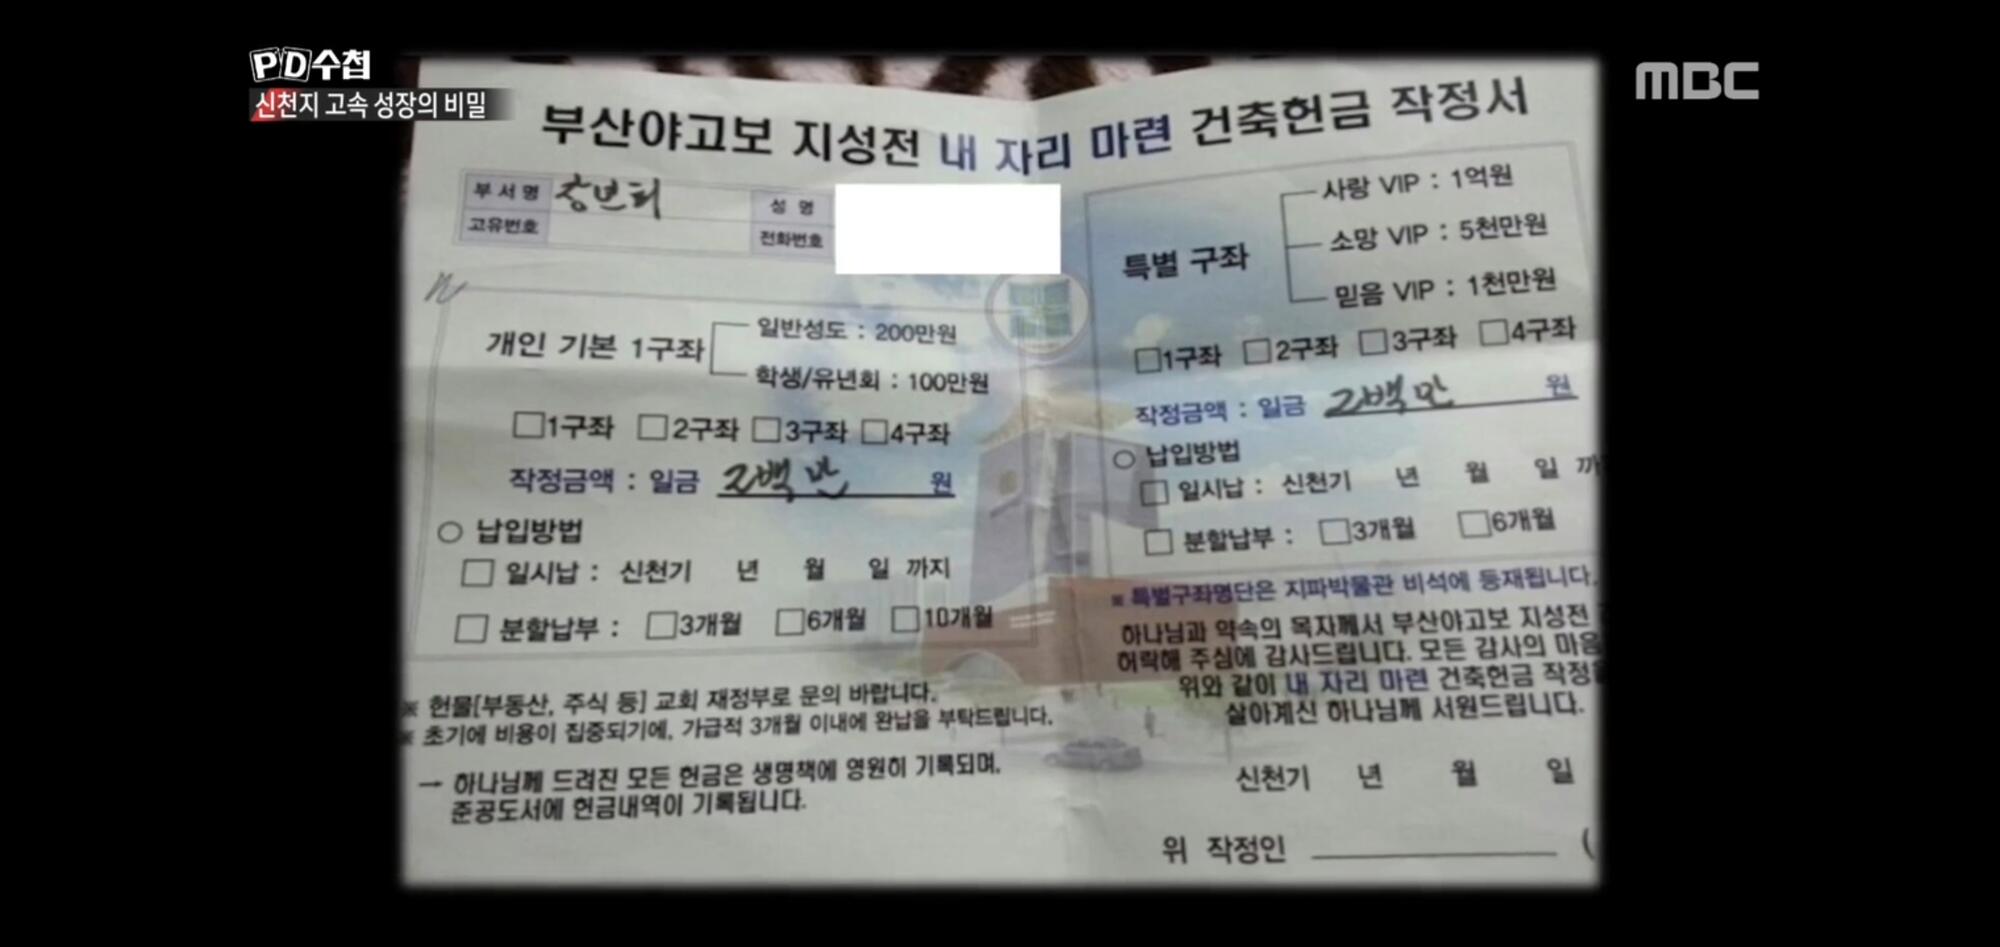 PD수첩
신천지 고속 성장의 비밀
MBC
부산야고보 지성전 내 자리 마련 건축헌금 작정서
부서명 장년회
고유번호
성 명
전화번호
개인 기본 1구좌
일반성도 : 200만원
학생/유년회 : 100만원
□1구좌 □2구좌 □3구좌 □4구좌
작정금액 : 일금 2백만 원
○ 납입방법
□ 일시납 : 신천기 년 월 일 까지
□ 분할납부 : □3개월 □6개월 □10개월
※ 헌물[부동산, 주식 등] 교회 재정부로 문의 바랍니다.
※ 초기에 비용이 집중되기에, 가급적 3개월 이내에 완납을 부탁드립니다.
→ 하나님께 드려진 모든 헌금은 생명책에 영원히 기록되며,
준공도서에 헌금내역이 기록됩니다.
특별 구좌
사랑 VIP : 1억원
소망 VIP : 5천만원
믿음 VIP : 1천만원
□1구좌 □2구좌 □3구좌 □4구좌
작정금액 : 일금 2백만 원
○ 납입방법
□ 일시납 : 신천기 년 월 일 까
□ 분할납부 : □3개월 □6개월
※ 특별구좌명단은 지파박물관 비석에 등재됩니다.
하나님과 약속의 목자께서 부산야고보 지성전
허락해 주심에 감사드립니다. 모든 감사의 마음
위와 같이 내 자리 마련 건축헌금 작정을
살아계신 하나님께 서원드립니다.
신천기 년 월 일
위 작정인 (